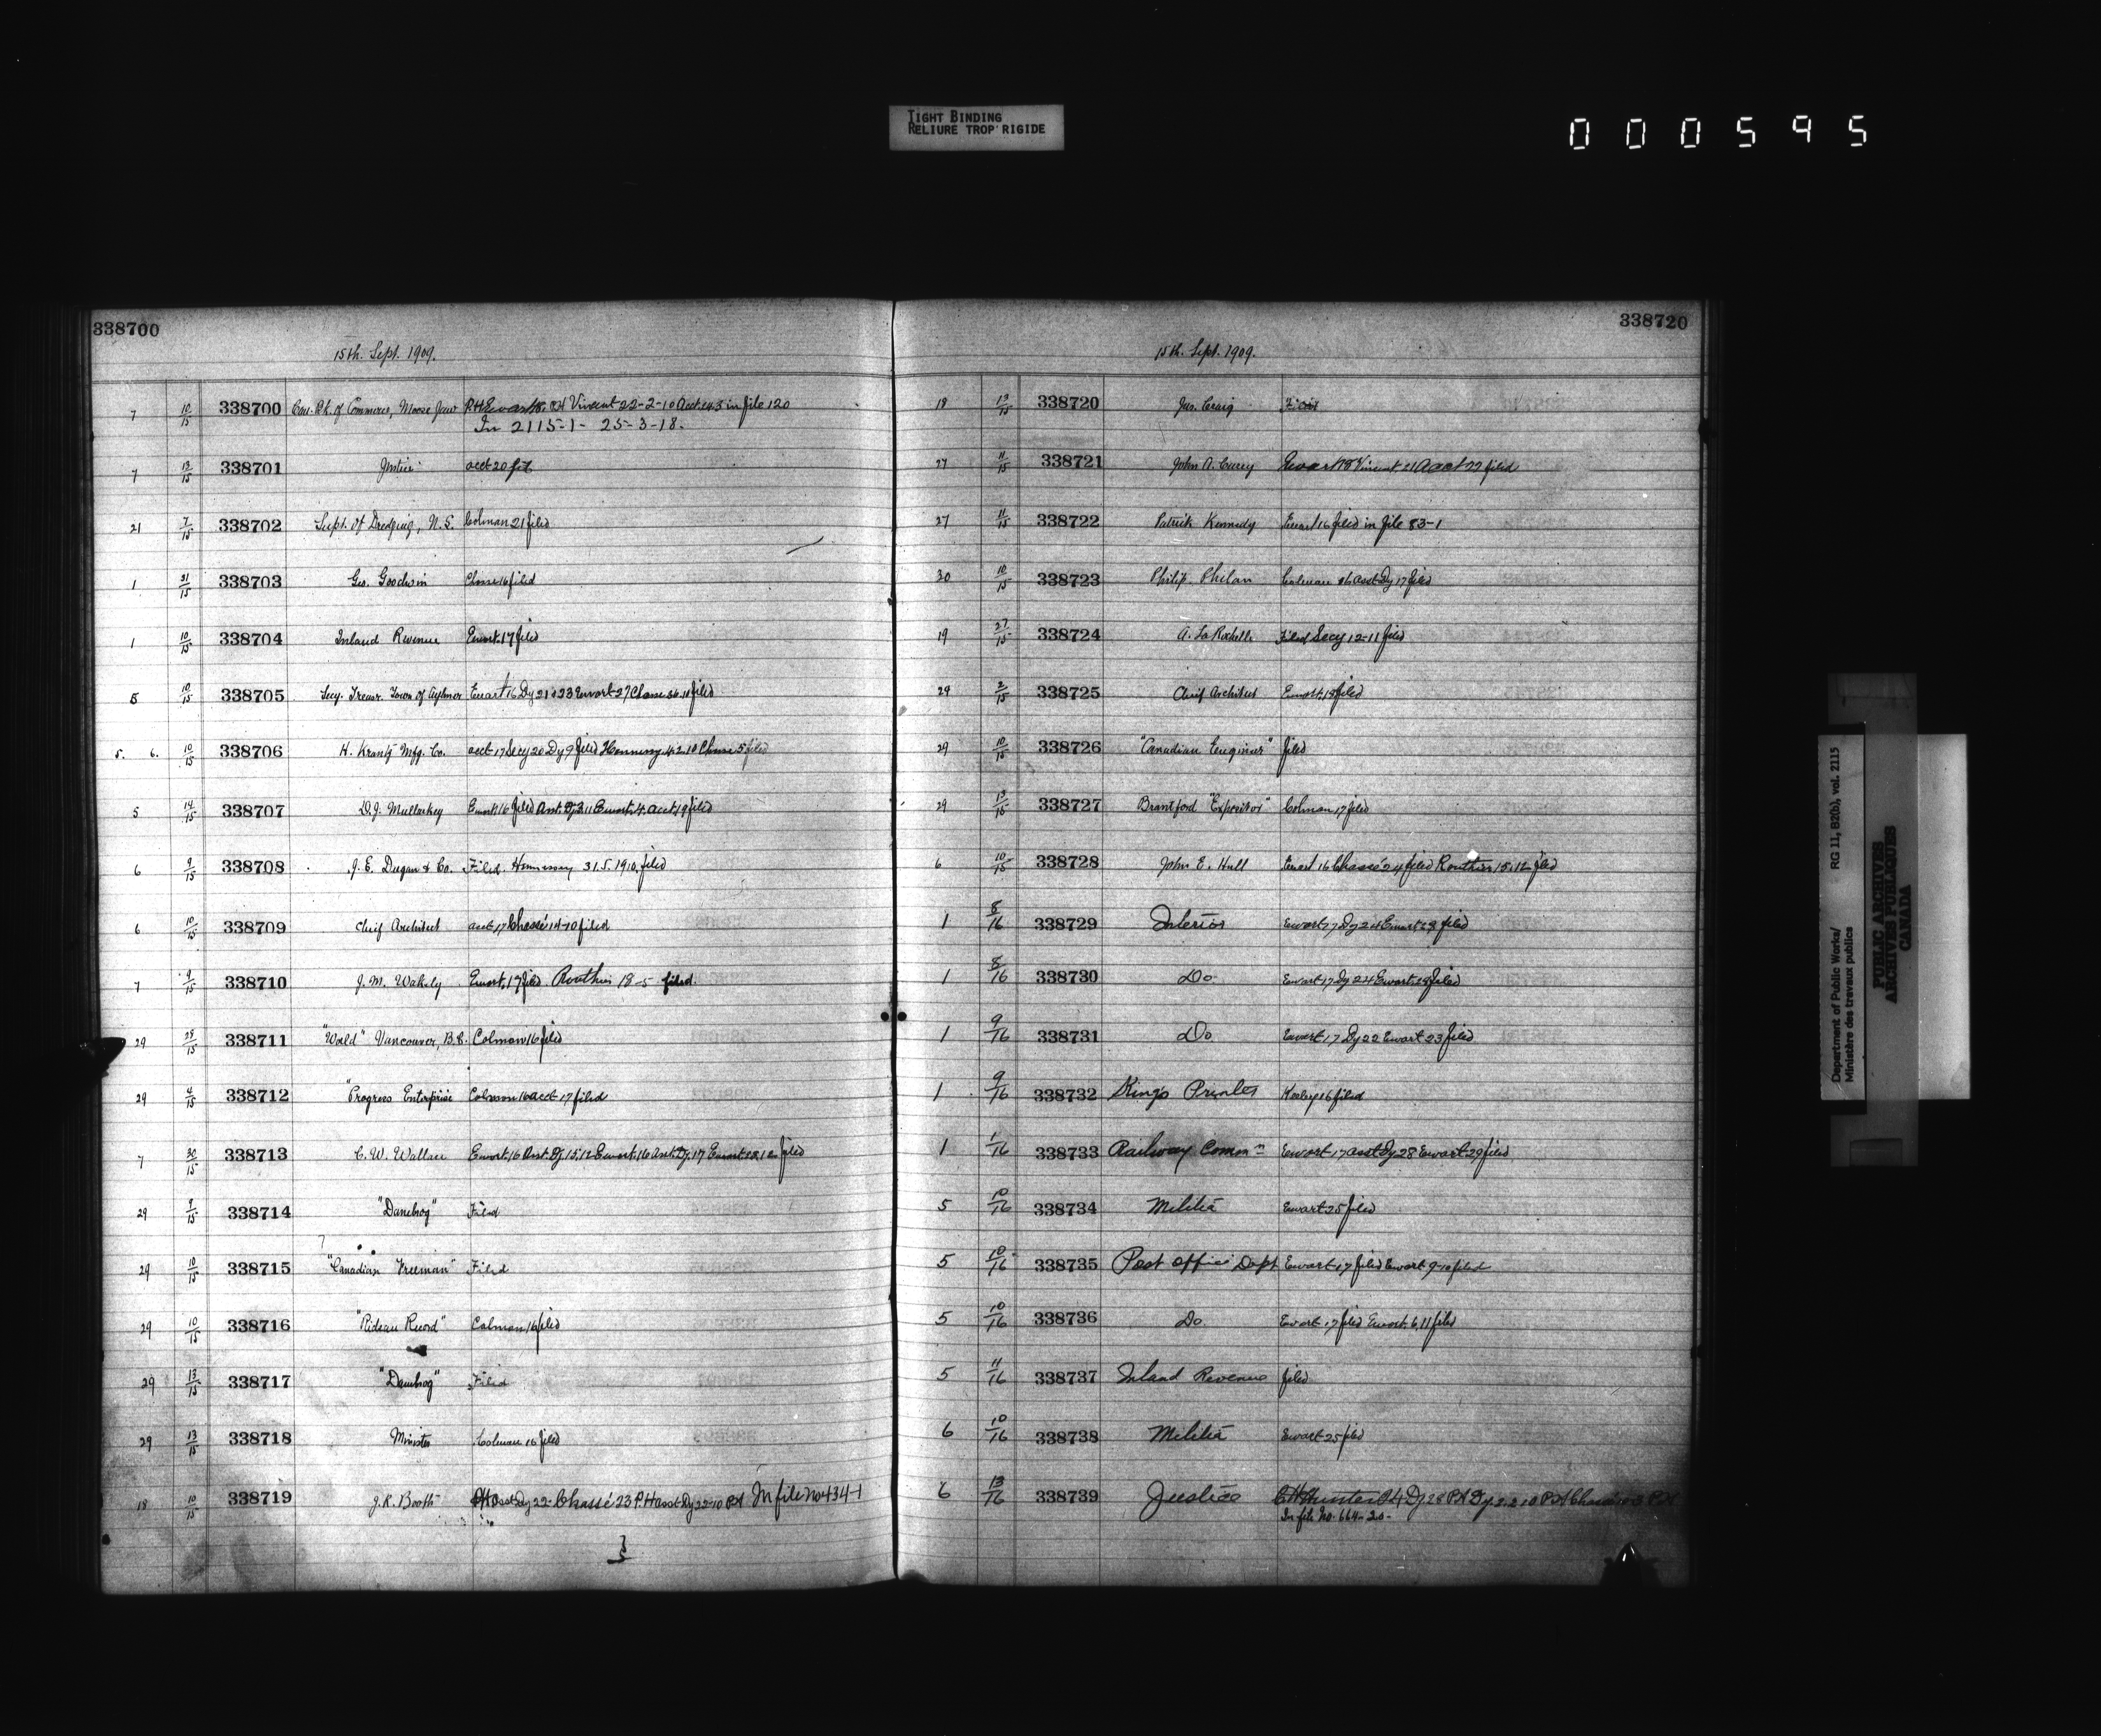 TIGHT BINDING
RELIURE TROP RIGIDE
000595
338700
15th. Sept. 1909.
7 10/15 338700 Can. Bk. of Commerce, Moose Jaw P.H. Ewart 18. P.H. Vincent 22-2-10 Acct. 14.3 in file 120
In 2115-1- 25-3-18.
7 13/15 338701 Justice acct 20 filed
21 7/15 338702 Supt. of Dredging, N.S. Colman 21 filed
1 31/15 338703 Geo. Goodwin Chasse 16 filed
1 10/15 338704 Inland Revenue Ewart. 17 filed
5 10/15 338705 Secy. Treasr. Town of Aylmer Ewart 16 Dy 21 & 23 Ewart 27 Chasse filed
5. 6. 10/15 338706 H. Krantz Mfg. Co. acct 17 Secy 20 Dy 9 filed Hennessy 4.2.10 Chasse 5 filed
5 14/15 338707 D.J. Mullarkey Ewart 16 filed Asst. Dy 3.11 Ewart. 4. acct. 19 filed
6 9/15 338708 J.E. Dugan & Co. Filed. Hennessy 31.5.1910. filed
6 10/15 338709 Chief Architect acct 17 Chassé 14-10 filed
7 9/15 338710 J.M. Wakely Ewart. 17 filed. Routhier 18-5 filed.
29 25/15 338711 "World" Vancouver, B.C. Colman 16 filed
29 4/15 338712 "Progress Enterprise Colman 16 acct 17 filed
7 30/15 338713 C.W. Wallace Ewart. 16 Asst. Dy. 15.12 Ewart. 16 Asst. Dy. 17 Ewart 18.12 filed
29 9/15 338714 "Danebrog" Filed
29 10/15 338715 "Canadian Freeman" Filed
29 10/15 338716 "Rideau Record" Colman 16 filed
29 13/15 338717 "Danebrog" Filed
29 13/15 338718 Minister Colman 16 filed
18 10/15 338719 J.R. Booth PH Asst Dy 22 Chassé 23 P.H asst Dy 22-10 PH In file No 434-1
338720
15th. Sept. 1909.
18 13/15 338720 Jas. Craig Filed
27 11/15 338721 John A. Carey Ewart 18 Vincent 21 Acct 22 filed
27 11/15 338722 Patrick Kennedy Ewart 16 filed in file 83-1
30 10/15 338723 Philip Phelan Colman 16 asst Dy 17 filed
19 27/15 338724 A. La Rochelle Filed Secy 12-11 filed
29 2/15 338725 Chief Architect Ewart. 18 filed
29 10/15 338726 "Canadian Engineer" filed
29 13/15 338727 Brantford "Expositor" Colman 17 filed
6 10/15 338728 John E. Hull Ewart 16 Chassé 24 filed Routhier 15.12 filed
1 8/16 338729 Interior Ewart 17 Dy 24 Ewart 28 filed
1 8/16 338730 Do Ewart 17 Dy 24 Ewart 28 filed
1 9/16 338731 Do Ewart 17 Dy 22 Ewart 23 filed
1 9/16 338732 King's Printer 16 filed
1 1/16 338733 Railway Commn Ewart 17 asst Dy 28 Ewart 29 filed
5 10/16 338734 Militia Ewart 25 filed
5 10/16 338735 Post Office Dept Ewart 17 filed Ewart 9-10 filed
5 10/16 338736 Do Ewart 17 filed Ewart. 6.11 filed
5 11/16 338737 Inland Revenue filed
6 10/16 338738 Militia Ewart 25 filed
6 13/16 338739 Justice Hunter Dy 28 PH Dy 2.2.10 PH Chassé PH
In file No. 664-20-
Department of Public Works/ RG 11, B2(b), vol. 2115
Ministère des travaux publics
PUBLIC ARCHIVES
ARCHIVES PUBLIQUES
CANADA